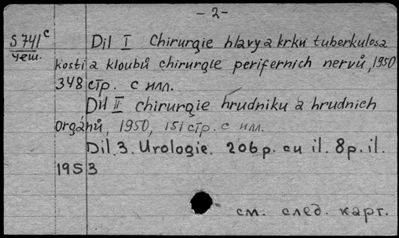 - 2 -
S 741 c Díl I Chirurgie hlavy a krku tuberkulosa
чеш. kosti a kloubů chirurgie periferních nervů, 1950
348 стр. с илл.
Díl II chirurgie hrudniku a hrudnich
orgánů, 1950, 151 стр. с илл.
Díl. 3. Urologie. 206 p. cu il. 8 p. il.
1953
см. след. карт.